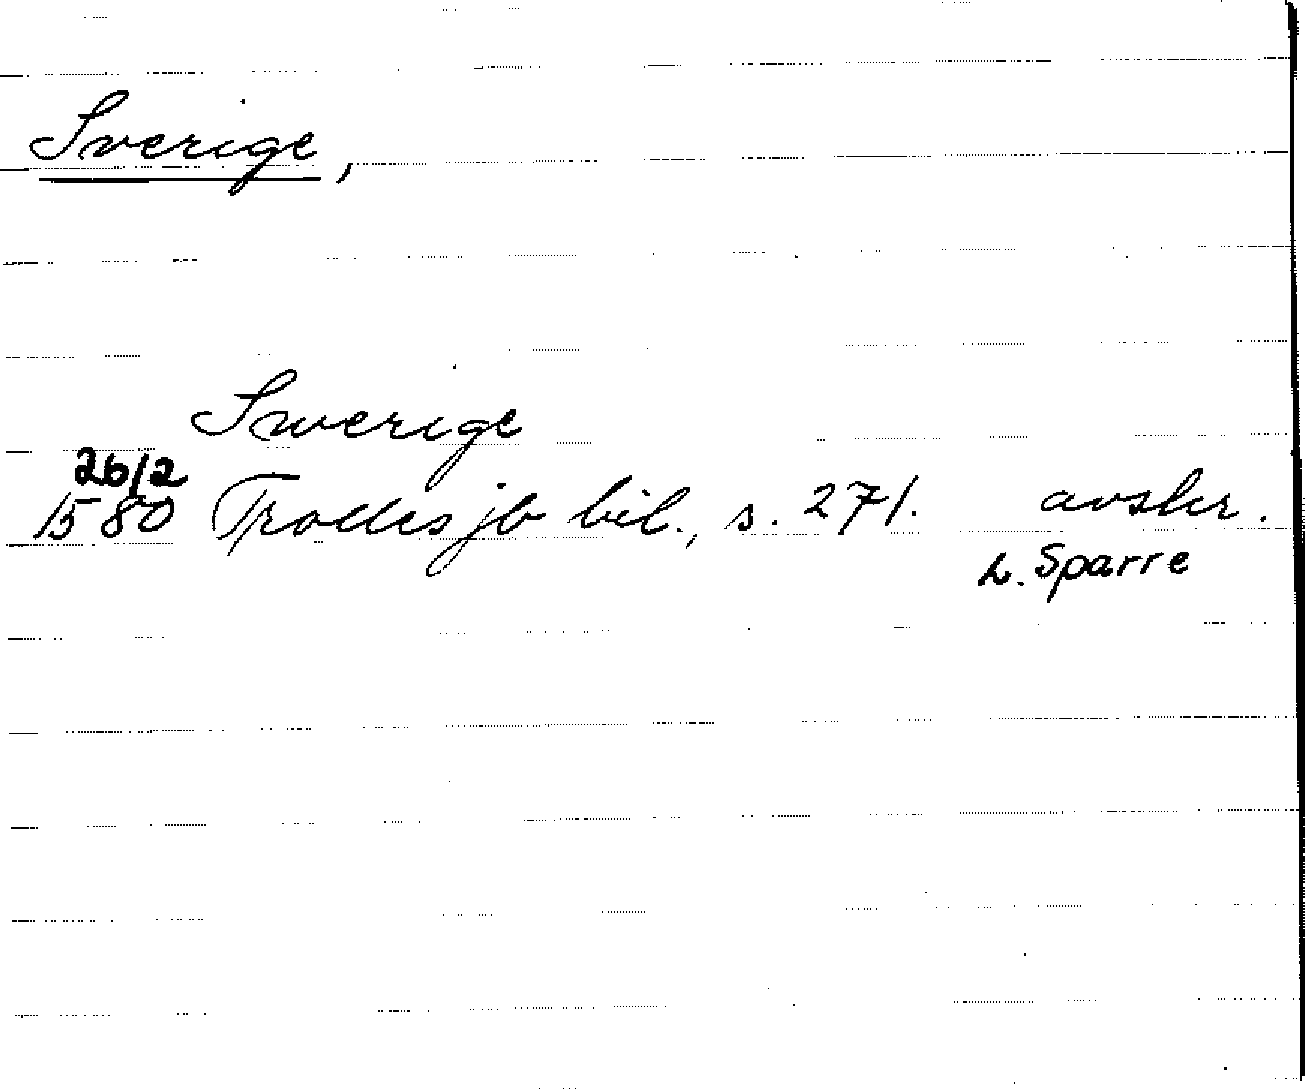 Sverige,
Swerige
26/2
1580 Trolles jb bil., s. 271. avskr.
L. Sparre